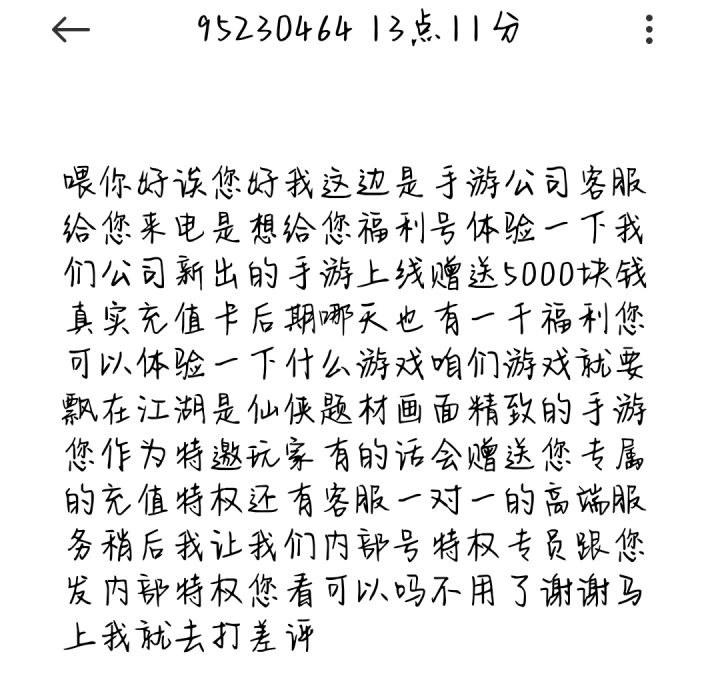 95230464 13点11分
喂你好诶您好我这边是手游公司客服
给您来电是想给您福利号体验一下我
们公司新出的手游上线赠送5000块钱
真实充值卡后期哪天也有一千福利您
可以体验一下什么游戏咱们游戏就要
飘在江湖是仙侠题材画面精致的手游
您作为特邀玩家有的话会赠送您专属
的充值特权还有客服一对一的高端服
务稍后我让我们内部号特权专员跟您
发内部特权您看可以吗不用了谢谢马
上我就去打差评